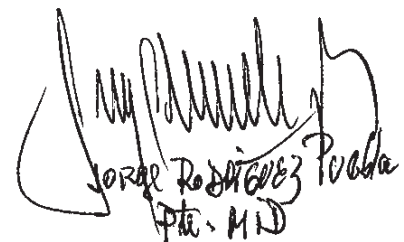 Jorge Rodríguez Puebla
Pte. MID